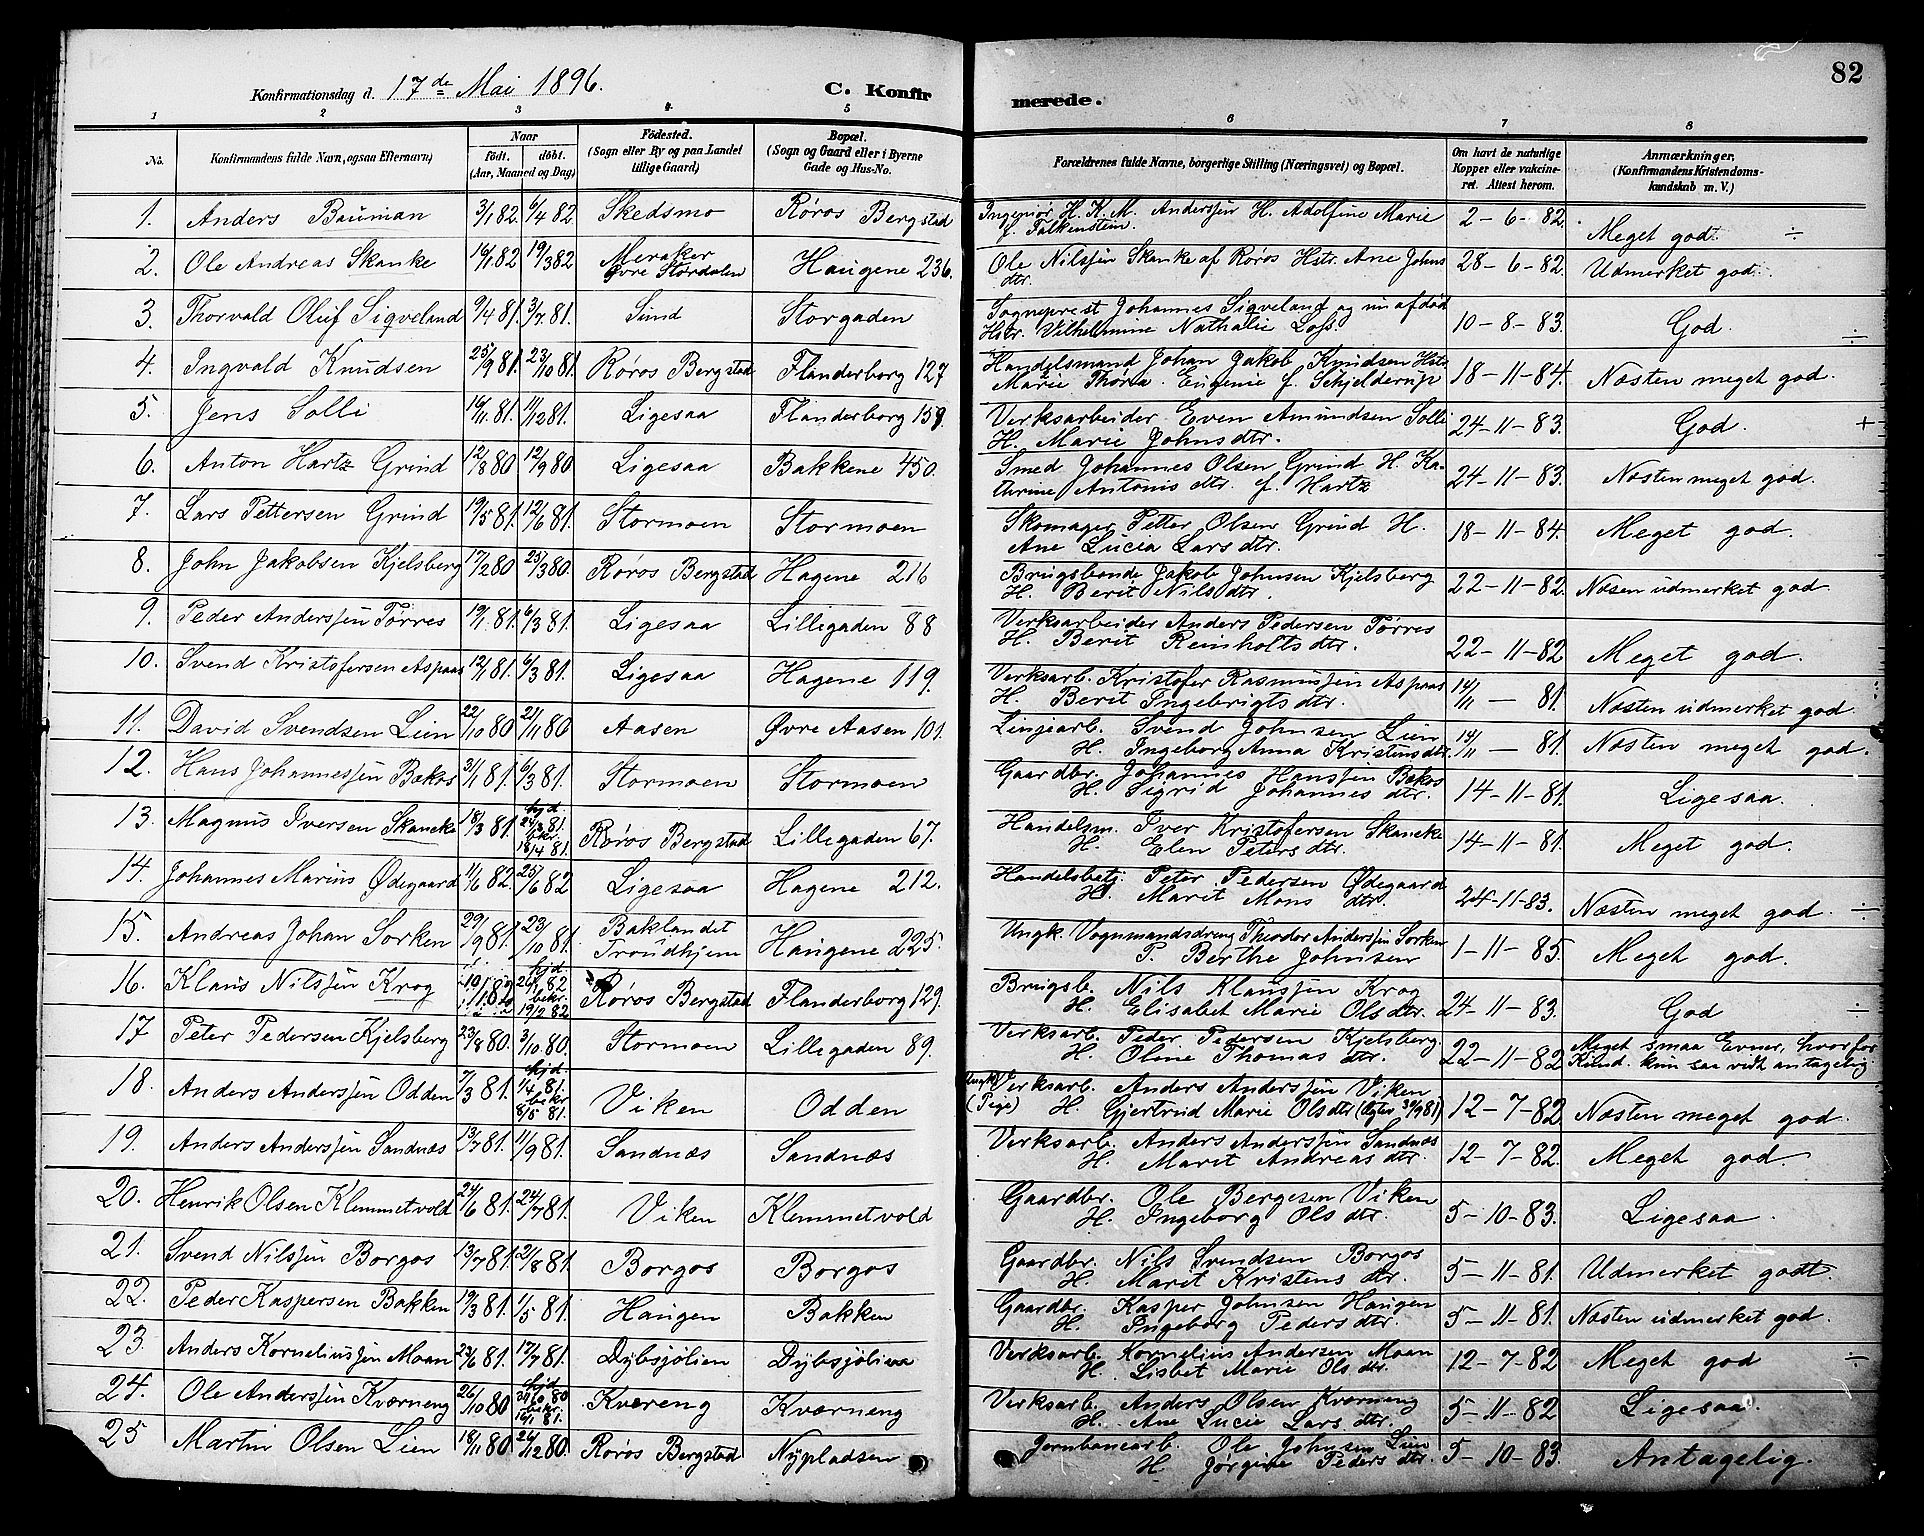 82
Konfirmationsdag d. 17de Mai 1896.
C. Konfirmerede.
1 2 3 4 5 6 7 8
No. Konfirmandens fulde Navn, ogsaa Efternavn) Naar født, døbt. (Aar, Maaned og Dag) Fødested. (Sogn eller By og paa Landet tillige Gaard) Bopæl. (Sogn og Gaard eller i Byerne Gade og Hus-No. Forældrenes fulde Navne, borgerlige Stilling (Næringsvei) og Bopæl. Om havt de naturlige Kopper eller vakcineret. Attest herom. Anmærkninger, (Konfirmandens Kristendomskundskab m. V.)
1. Anders Bauman 3/1 82. 6/4 82 Skedsmo Røros Bergstad Ingeniør H. K. M. Anderssen H. Adolfine Marie f. Falkenstein. 2-6-82. Meget god. ÷
2. Ole Andreas Skanke 16/1 82 19/3 82 Meraker Øvre Størdalen Haugene 236. Ole Nilssen Skanke af Røros Hstr. Ane Johns dtr. 28-6-82. Udmerket god.
3. Thorvald Oluf Sigveland 9/4 81. 3/7 81. Sund Storgaden Sogneprest Johannes Sigveland og nu afdød Hstr. Vilhelmine Nathalie Loss. 10-8-83. God. ÷
4. Ingvald Knudsen 25/9 81. 23/10 81. Røros Bergstad Flanderborg 127 Handelsmand Johan Jakob Knudsen Hstr Marie Thora Eugenie f. Schjelderup 18-11-84. Næsten meget god.
5. Jens Solli 16/11 81. 11/12 81. Ligesaa Flanderborg 159. Verksarbeider Even Amundsen Solli H. Marie Johnsdtr. 24-11-83. God. +
6. Anton Hartz Grind 12/8 80 12/9 80 Ligesaa Bakkene 450. Smed Johannes Olsen Grind H. Kathrine Antonisdtr. f. Hartz 24-11-83. Næsten meget god.
7. Lars Pettersen Grind 19/5 81. 12/6 81. Stormoen Stormoen Skomager Petter Olsen Grind H. Ane Lucia Larsdtr. 18-11-84. Meget god.
8. John Jakobsen Kjelsberg 17/2 80 25/3 80. Røros Bergstad Hagene 216 Brugsbonde Jakob Johnsen Kjelsberg H. Berit Nilsdtr. 22-11-82. Næsen udmerket god
9. Peder Anderssen Tørres 19/1 81. 6/3 81. Ligesaa Lillegaden 88 Verksarbeider Anders Pedersen Tørres H. Berit Reinholtsdtr. 22-11-82 Meget god.
10. Svend Kristofersen Aspaas 12/1 81. 6/3 81. Ligesaa Hagene 119. Verksarb. Kristofer Rasmussen Aspaas H. Berit Ingebrigtsdtr. 14/11 - 81. Næsten udmerket god
11. David Svendsen Lien 22/10 80 21/11 80 Aasen Øvre Aasen 101. Linjearb. Svend Johnsen Lien H. Ingeborg Anna Kristensdtr. 14/11 - 81. Næsten meget god.
12. Hans Johannessen Bakos 31/1 81. 6/3 81. Stormoen Stormoen Gaardbr. Johannes Hanssen Bakos H. Sigrid Johannesdtr. 14-11-81. Ligesaa.
13. Magnus Iversen Skancke 18/3 81. hjd 24/3 81. bekr. 18/4 81. Røros Bergstad Lillegaden 67. Handelsm. Iver Kristofersen Skancke H. Elen Petersdtr. 14-11-81. Meget god.
14. Johannes Marius Ødegaard 11/6 82. 25/6 82 Ligesaa Hagene 212. Handelsbetj. Peter Pedersen Ødegaard H. Marit Mons dtr. 24-11-83. Næsten meget god. ÷
15. Andreas Johan Sorken 29/9 81. 23/10 81. Baklandet Trondhjem Haugene 225. Ungk. Vognmandsdreng Theodor Anderssen Sorken P. Berthe Johnsen 1-11-85. Meget god.
16. Klaus Nilssen Krog 19/1 82 hjd 26/1 82 bekr. 19/2 82 Røros Bergstad Flanderborg 129. Brugsb. Nils Klaussen Krog H. Elisabet Marie Olsdtr. 24-11-83. God ÷
17 Peter Pedersen Kjelsberg 23/8 80. 3/10 80. Stormoen Lillegaden 89. Verksarb. Peder Pedersen Kjelsberg H. Oline Thomasdtr. 22-11-82 Meget smaa Evner, hvorfor Kund. kun saa vidt antagelig
18. Anders Anderssen Odden 7/3 81. hjd 1/4 81. bekr 8/5 81. Viken Odden Ungk. (Pige) Verksarb. Anders Anderssen Viken H. Gjertrud Marie Olsdtr (Ægtev 30/9 81). 12-7-82 Næsten meget god.
19. Anders Anderssen Sandnæs 13/7 81. 11/9 81. Sandnæs Sandnæs Verksarb. Anders Anderssen Sandnæs H. Marit Andreasdtr. 12-7-82. Meget god.
20. Henrik Olsen Klemmetvold 24/6 81. 24/7 81. Viken Klemmetvold Gaardbr. Ole Bergesen Viken H. Ingeborg Olsdtr. 5-10-83. Ligesaa.
21. Svend Nilssen Borgos 13/7 81. 21/8 81. Borgos Borgos Gaardbr. Nils Svendsen Borgos H. Marit Kristensdtr. 5-11-81. Udmerket godt.
22. Peder Kaspersen Bakken 19/3 81. 1/5 81. Haugen Bakken Gaardbr. Kasper Johnsen Haugen H. Ingeborg Pedersdtr. 5-11-81. Næsten udmerket god.
23. Anders Korneliussen Moan 23/6 81. 17/7 81. Dybsjølien Dybsjølien Verksarb. Kornelius Andersen Moan H. Lisbet Marie Olsdtr. 12-7-82 Meget god ÷
24. Ole Anderssen Kværneng 26/10 80 hjd 30/10 80 bekr. 16/1 81. Kværeng Kværneng Verksarb. Anders Olsen Kværneng H. Ane Lucie Larsdtr. 5-11-82 Ligesaa.
25 Martin Olsen Lien 18/11 80 26/12 80. Røros Bergstad Nypladsen Jernbanearb. Ole Johnsen Lien H. Jørgine Pedersdtr. 5-10-83. Antagelig.